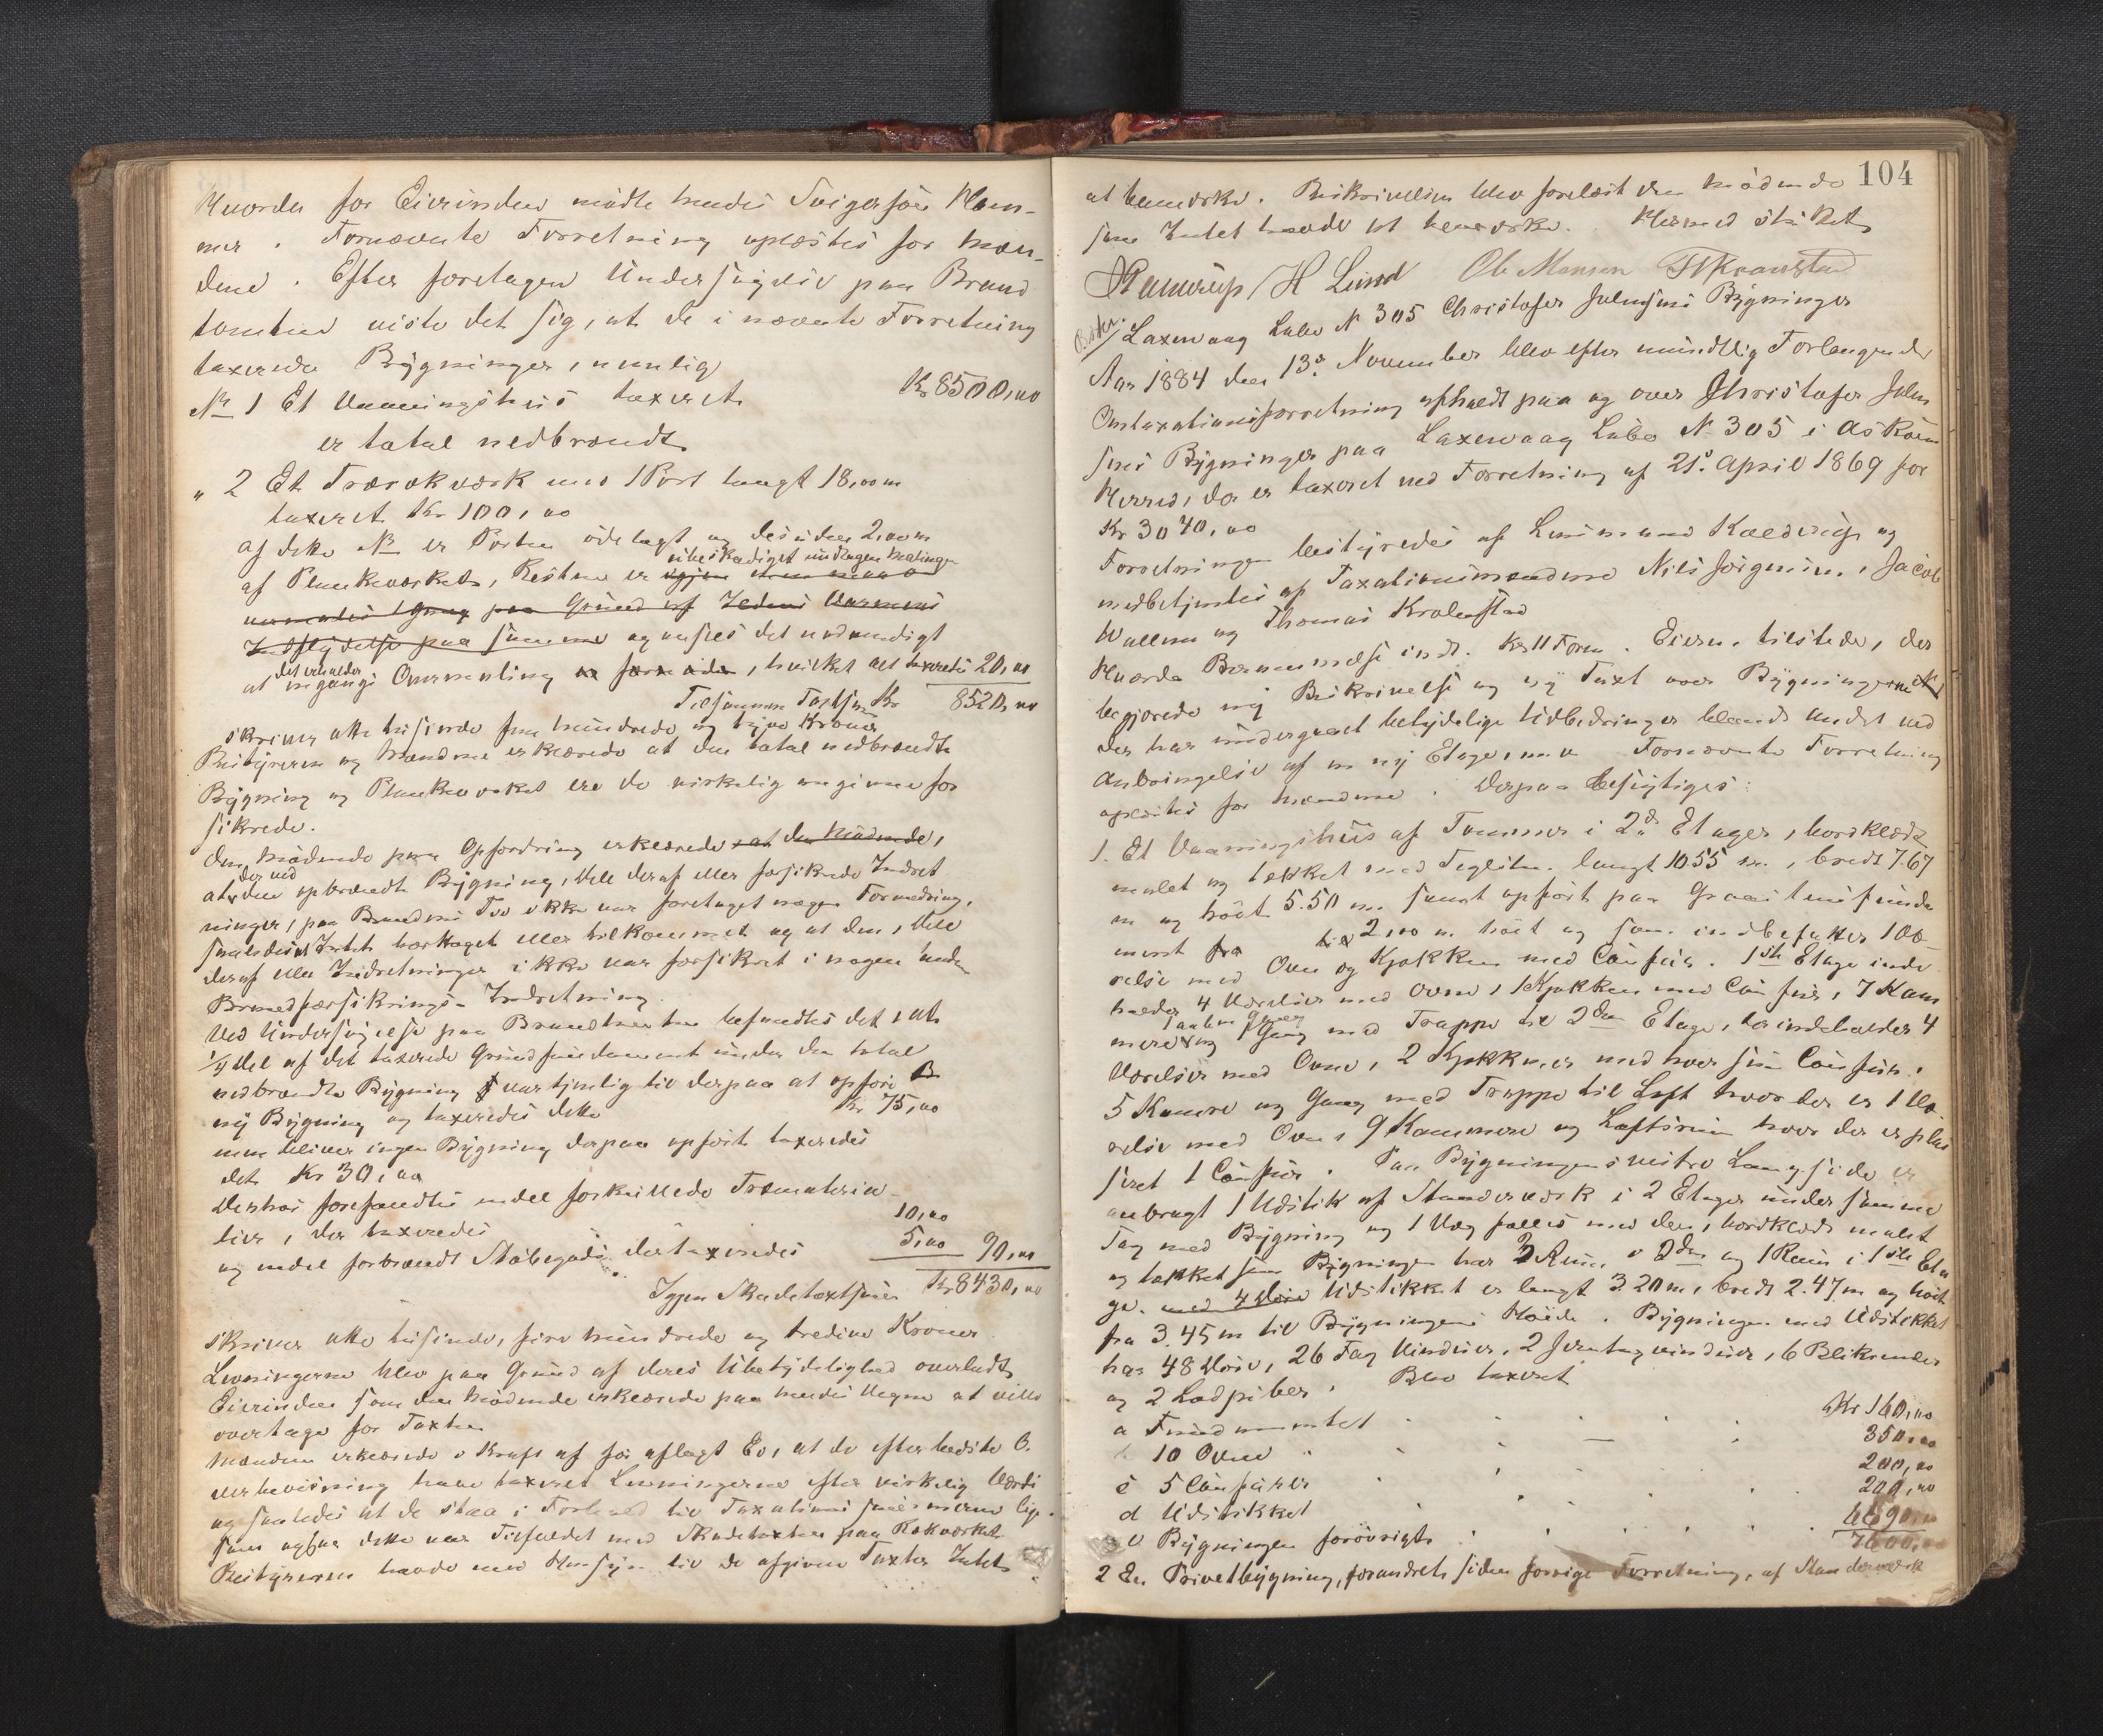 Hvorder for Eierinden mødte hendes Svigersøn Klem-
mer. Fornævnte Forretning oplæstes for Mæn-
dene. Efter foretagen Undersøgelse paa Brand
tomten viste det sig, at de i nævnte Forretning
taxerede Bygninger, nemlig
No 1 Et Vaaningshus taxeret Kr 8500,00
er total nedbrændt
" 2 Et Trærækværk med 1 Port langt 18,00 m
taxeret Kr 100,00
af dette No er Porten ødelagt og desuden 2,00 m
ubeskadiget undtagen Malingen
af Plankeværket, Resten er
paa Grund af
paa samme og ansees det nødvendigt
det erholder
at engangs Overmaling, hvilket alt taxeredes 20,00
Tilsammen Taxtsum Kr 8520,00
skriver otte tusinde fem hundrede og tyve Kroner
Bestyreren og Mændene erklærede at den total nedbrændte
Bygning og Plankeværket ere de virkelig angivne for
sikrede.
Den mødende paa Opfordring erklærede at den mødende,
der ved
at den opbrændte Bygning, Dele deraf eller forsikrede Indret
ninger, paa Brandens Tid ikke var foretaget nogen Forandring,
saaledes at Intet borttaget eller tilkommet og at den, Dele
deraf eller Indretninger ikke var forsikret i nogen anden
Brandforsikrings-Indretning.
Ved Undersøgelse paa Brandtomten befandtes det, at
1/4 Del af det taxerede Grundfundament under den total
nedbrændte Bygning var tjenlig til derpaa at opføre
ny Bygning og taxeredes dette Kr 75,00
men bliver ingen Bygning derpaa opført taxeredes
det Kr 30,00
Derhos forefandtes endel forskjellede Træmateria-
lier, der taxeredes 10,00
og endel forbrændt Støbegods der taxeredes 5,00 90,00
Igjen Skadetaxtsum Kr 8430,00
skriver otte tusinde, fire hundrede og tredive Kroner
Levningerne blev paa Grund af deres Ubetydelighed overladt
Eierinden som den Mødende erklærede paa hendes Vegne at ville
overtage for Taxten
Mændene erklærede i Kraft af før aflagt Ed, at de efter bedste O-
verbevisning have taxeret Levningerne efter virkelig Værdi
og saaledes at de staa i Forhold til Taxationssummerne lige-
som ogsaa dette var Tilfældet med Skadetaxten paa Rækværket
Bestyreren havde med Hensyn til de afgivne Taxter Intet
104
at bemærke. Beskrivelsen blev forelæst den Mødende
som Intet havde at bemærke. Hermed sluttet
H Lund Ole Monsen T Kraanstad
Laxevaag Løbe N 305 Christofer Johnsens Bygninger
Aar 1884 den 13de November blev efter mundtlig Forlangende
Omtaxationsforretning afholdt paa og over Christofer John
sens Bygninger paa Laxevaag Løbe N 305 i Askøen
Herred, der er taxeret ved Forretning af 21de April 1869 for
Kr 3040,00
Forretningen bestyredes af Lensmand Kaldvig og
medbetjentes af Taxationsmændene Nils Jørgensen, Jacob
Wallem og Thomas Kralenstad
Hvorda Bormundelse indt. Kr 11 Form. Eieren tilstede, der
begjærede ny Beskrivelse og ny Taxt over Bygningerne
der har undergaaet betydelige Udbedringer blandt andet ved
Anbringelse af en ny Etage, m. v. Fornævnte Forretning
oplæstes for Mændene. Derpaa besigtiges:
1. Et Vaaningshus af Tømmer i 2de Etager, bordklædt
malet og tækket med Teglsten langt 10.55 m., bredt 7.67
m og høit 5.50 m. samt opført paa Graastensfunda
ment fra til 2,00 m. høit og som indbefatter 1 Væ-
relse med Ovn og Kjøkken med Comfur. 1ste Etage inde
holder 4 Værelser med Ovne, 1 Kjøkken med Comfur, 7 Kam
mere og 1 Gang med Trappe til 2den Etage, der indeholder 4
Værelser med Ovne, 2 Kjøkkener med hver sin Comfur,
5 Kamre og Gang med Trappe til Loft hvor der er 1 Væ
relse med Ovn, 9 Kammere og Loftsrum hvor der er pla
seret 1 Comfur. Paa Bygningens vestre Langside er
anbragt 1 Udstik af Standerværk i 2 Etager under samme
Tag med Bygning og 1 Væg fælles med den, bordklædt malet
og tækket som Bygningen har 2 Rum i 2den og 1 Rum i 1ste Eta
ge. med 4 Døre Udstikket er langt 3.20 m, bredt 2.47 m og høit
fra 3.45 m til Bygningens Høide. Bygningen med Udstikket
har 48 Døre, 26 Fag Vinduer, 2 Jerntagvinduer, 6 Blikrender
og 2 Lodpiber. Blev taxeret
a Fundamentet Kr 160,00
b 10 Ovne 350,00
c 5 Comfurer 200,00
d Udstikket 200,00
e Bygningen forøvrigt 6690,00
7600,00
2 En Privetbygning, forandret siden forrige Forretning, af Standerværk